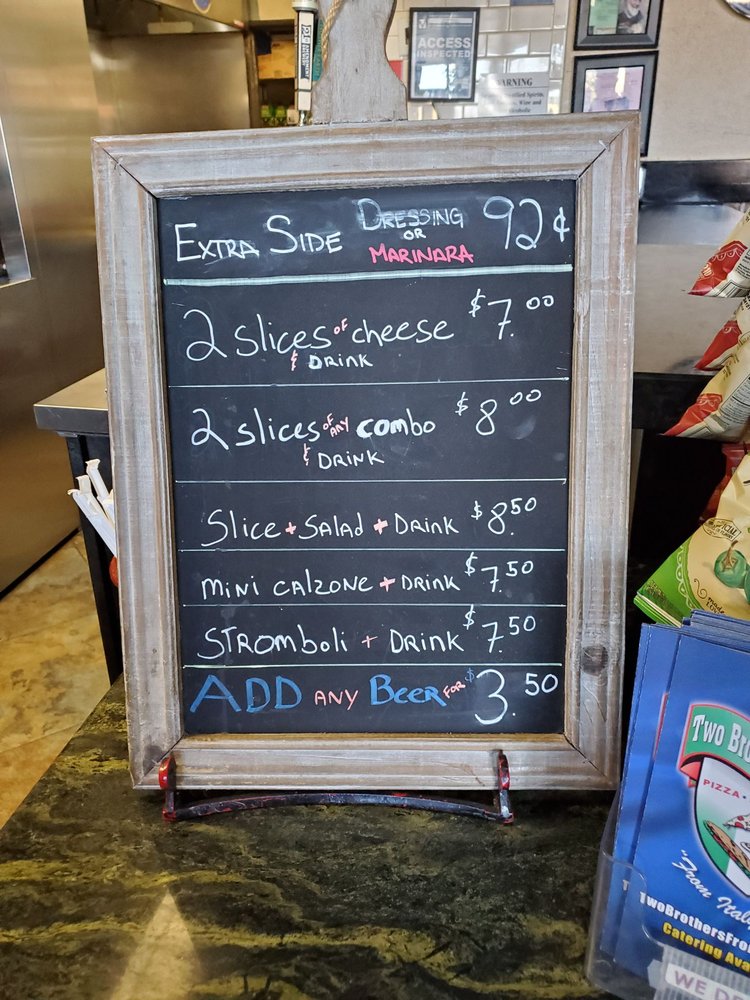 ACCESS
INSPECTED
WARNING
EXTRA SIDE DRESSING OR MARINARA 92¢
2 slices of cheese $7.00
& DRINK
2 slices of ANY combo $8.00
& DRINK
Slice + SALAd + DRINK $8.50
MINI CALZONE + DRINK $7.50
STROMboli + DRINK $7.50
ADD ANY BEER FOR $3.50
TWO BRO
PIZZA
"From Ital
TwoBrothersFro
Catering Ava
WE D